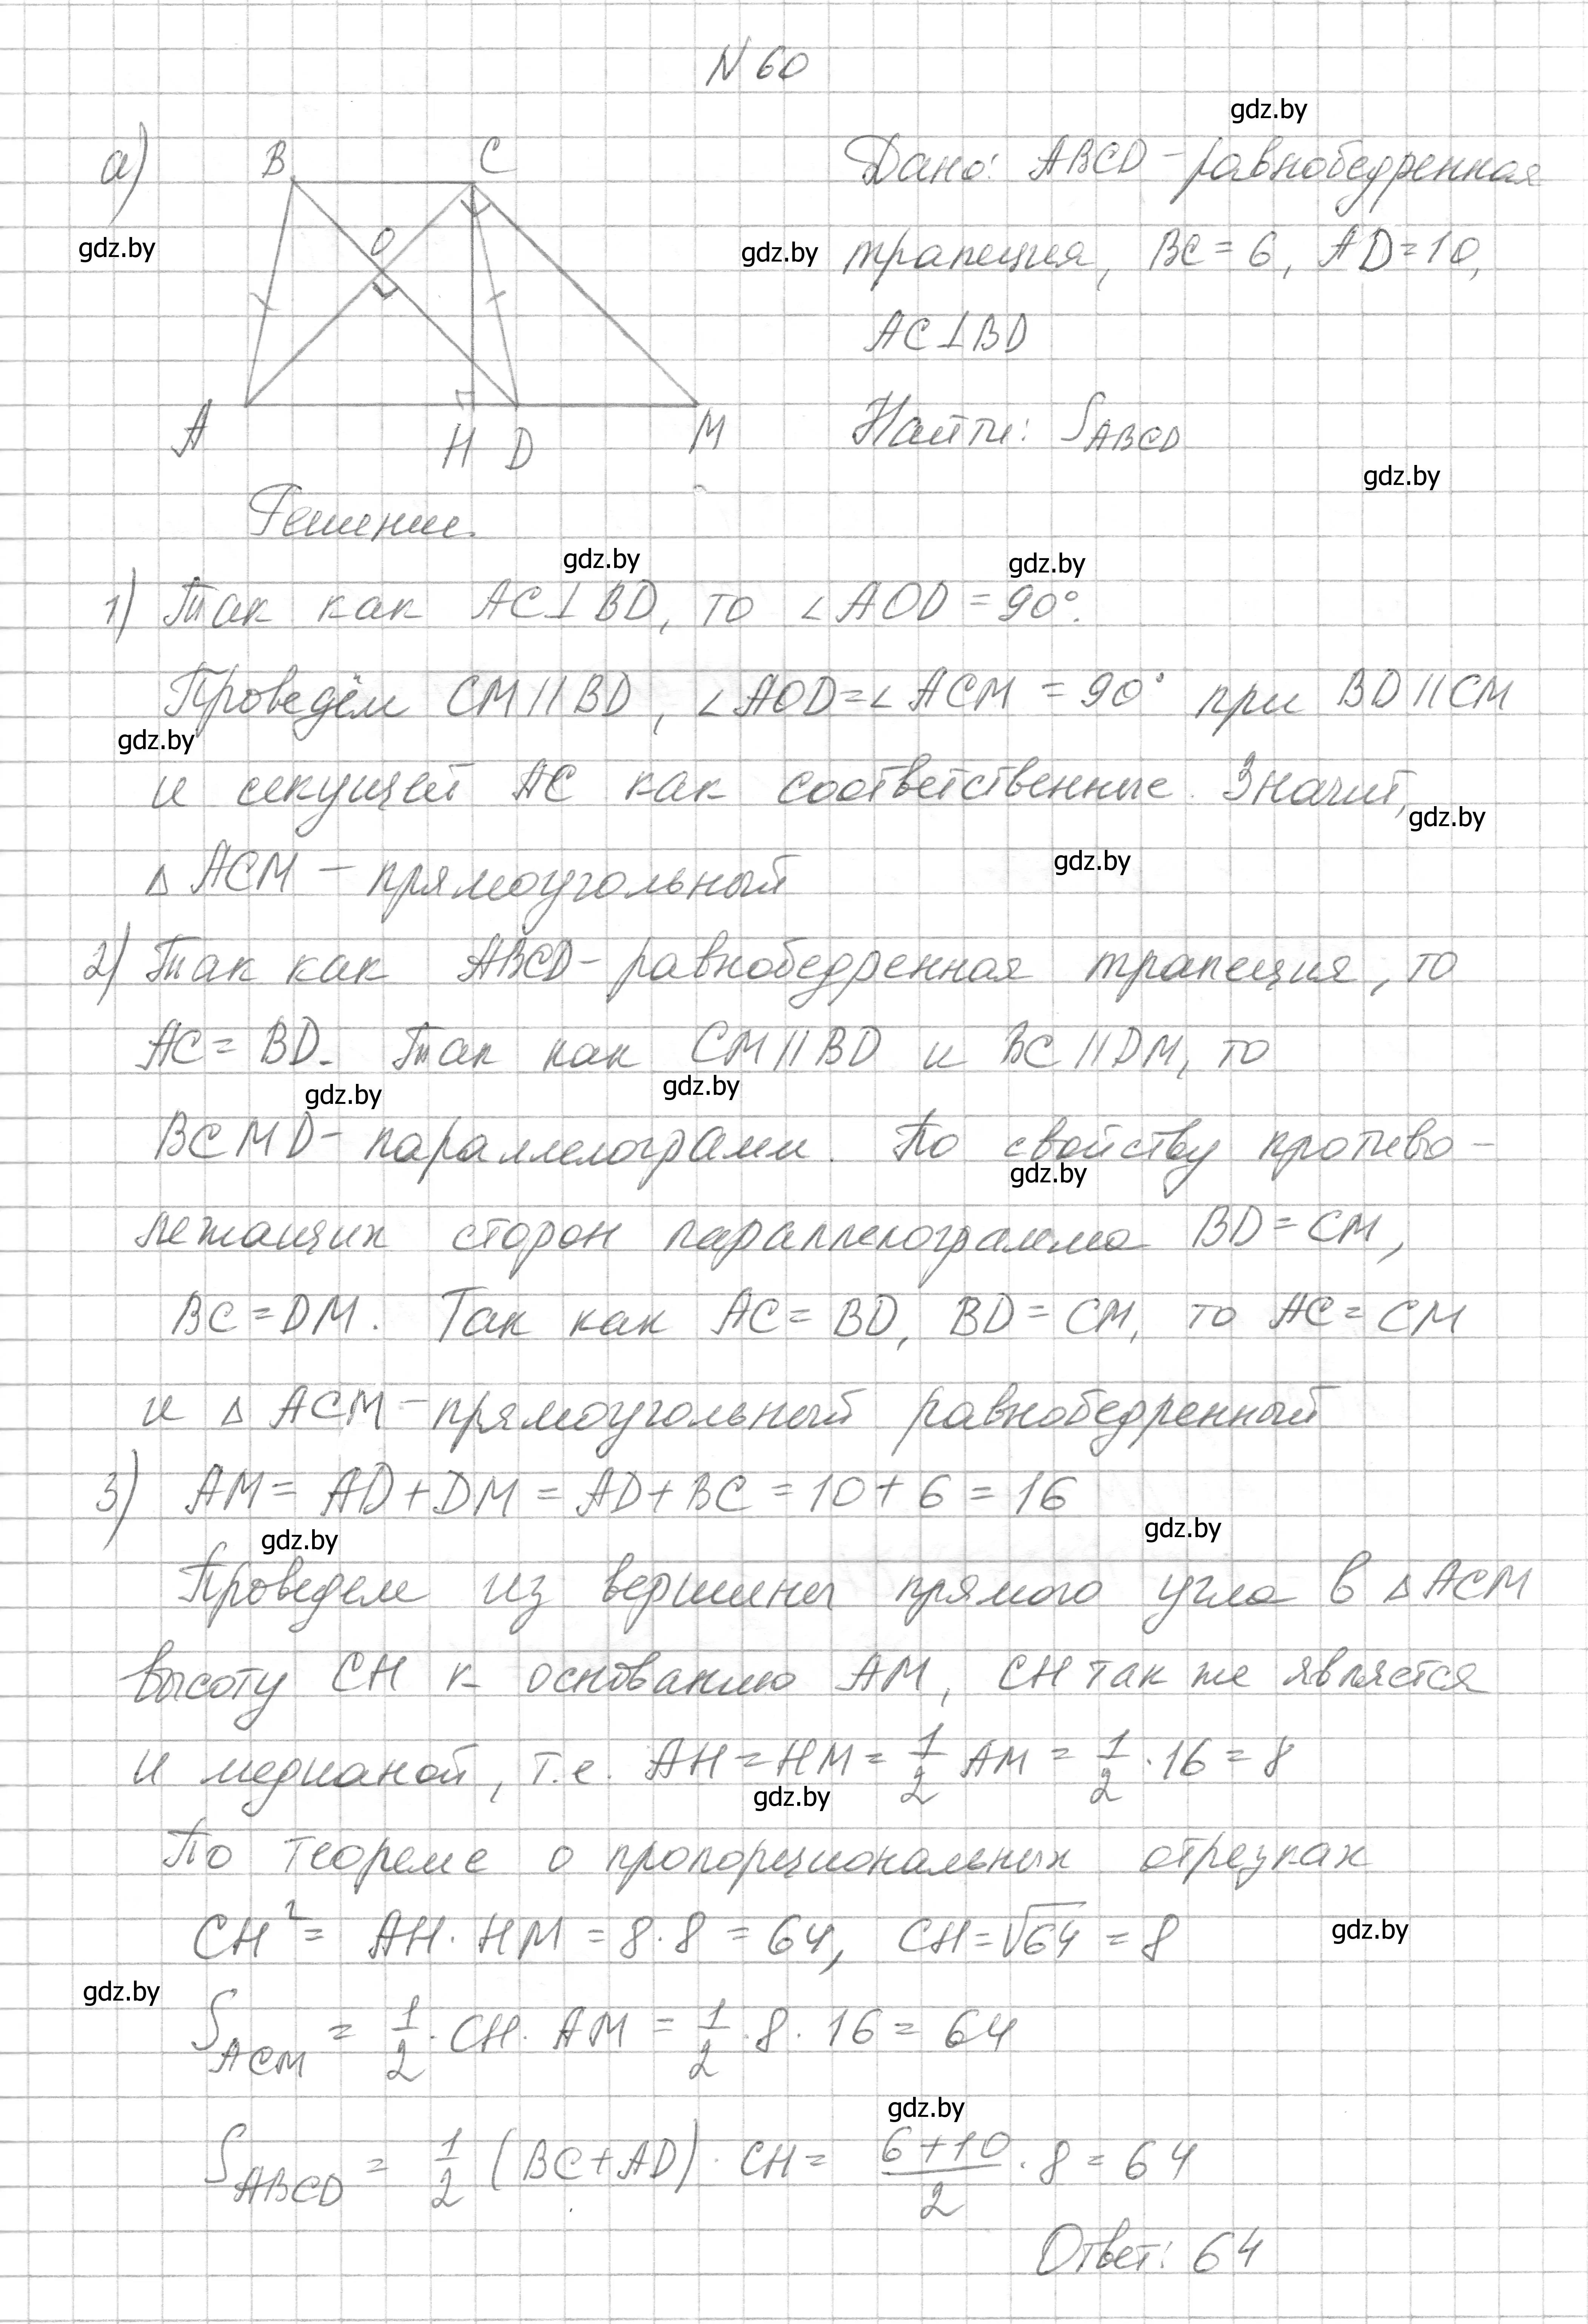 N 60
gdz.by
а) B C
Дано: ABCD - равнобедренная
O
gdz.by
gdz.by
трапеция, BC = 6, AD = 10,
AC⊥BD
A H D M
Найти: S_ABCD
gdz.by
Решение.
gdz.by gdz.by
1) Так как AC⊥BD, то ∠AOD = 90°.
Проведём CM || BD, ∠AOD = ∠ACM = 90° при BD || CM
gdz.by
и секущей AC как соответственные. Значит,
gdz.by
gdz.by
△ ACM - прямоугольный
2) Так как ABCD - равнобедренная трапеция, то
AC = BD. Так как CM || BD и BC || DM, то
gdz.by gdz.by
BCMD - параллелограмм. По свойству противо-
gdz.by
лежащих сторон параллелограмма BD = CM,
BC = DM. Так как AC = BD, BD = CM, то AC = CM
и △ ACM - прямоугольный равнобедренный
3) AM = AD + DM = AD + BC = 10 + 6 = 16
gdz.by gdz.by
Проведем из вершины прямого угла в △ ACM
высоту CH к основанию AM, CH так же является
и медианой, т.е. AH = HM = 1/2 AM = 1/2 · 16 = 8
gdz.by
По теореме о пропорциональных отрезках
CH² = AH · HM = 8 · 8 = 64, CH = √64 = 8
gdz.by
gdz.by
S_ACM = 1/2 · CH · AM = 1/2 · 8 · 16 = 64
gdz.by
S_ABCD = 1/2 (BC + AD) · CH = (6+10)/2 · 8 = 64
Ответ: 64